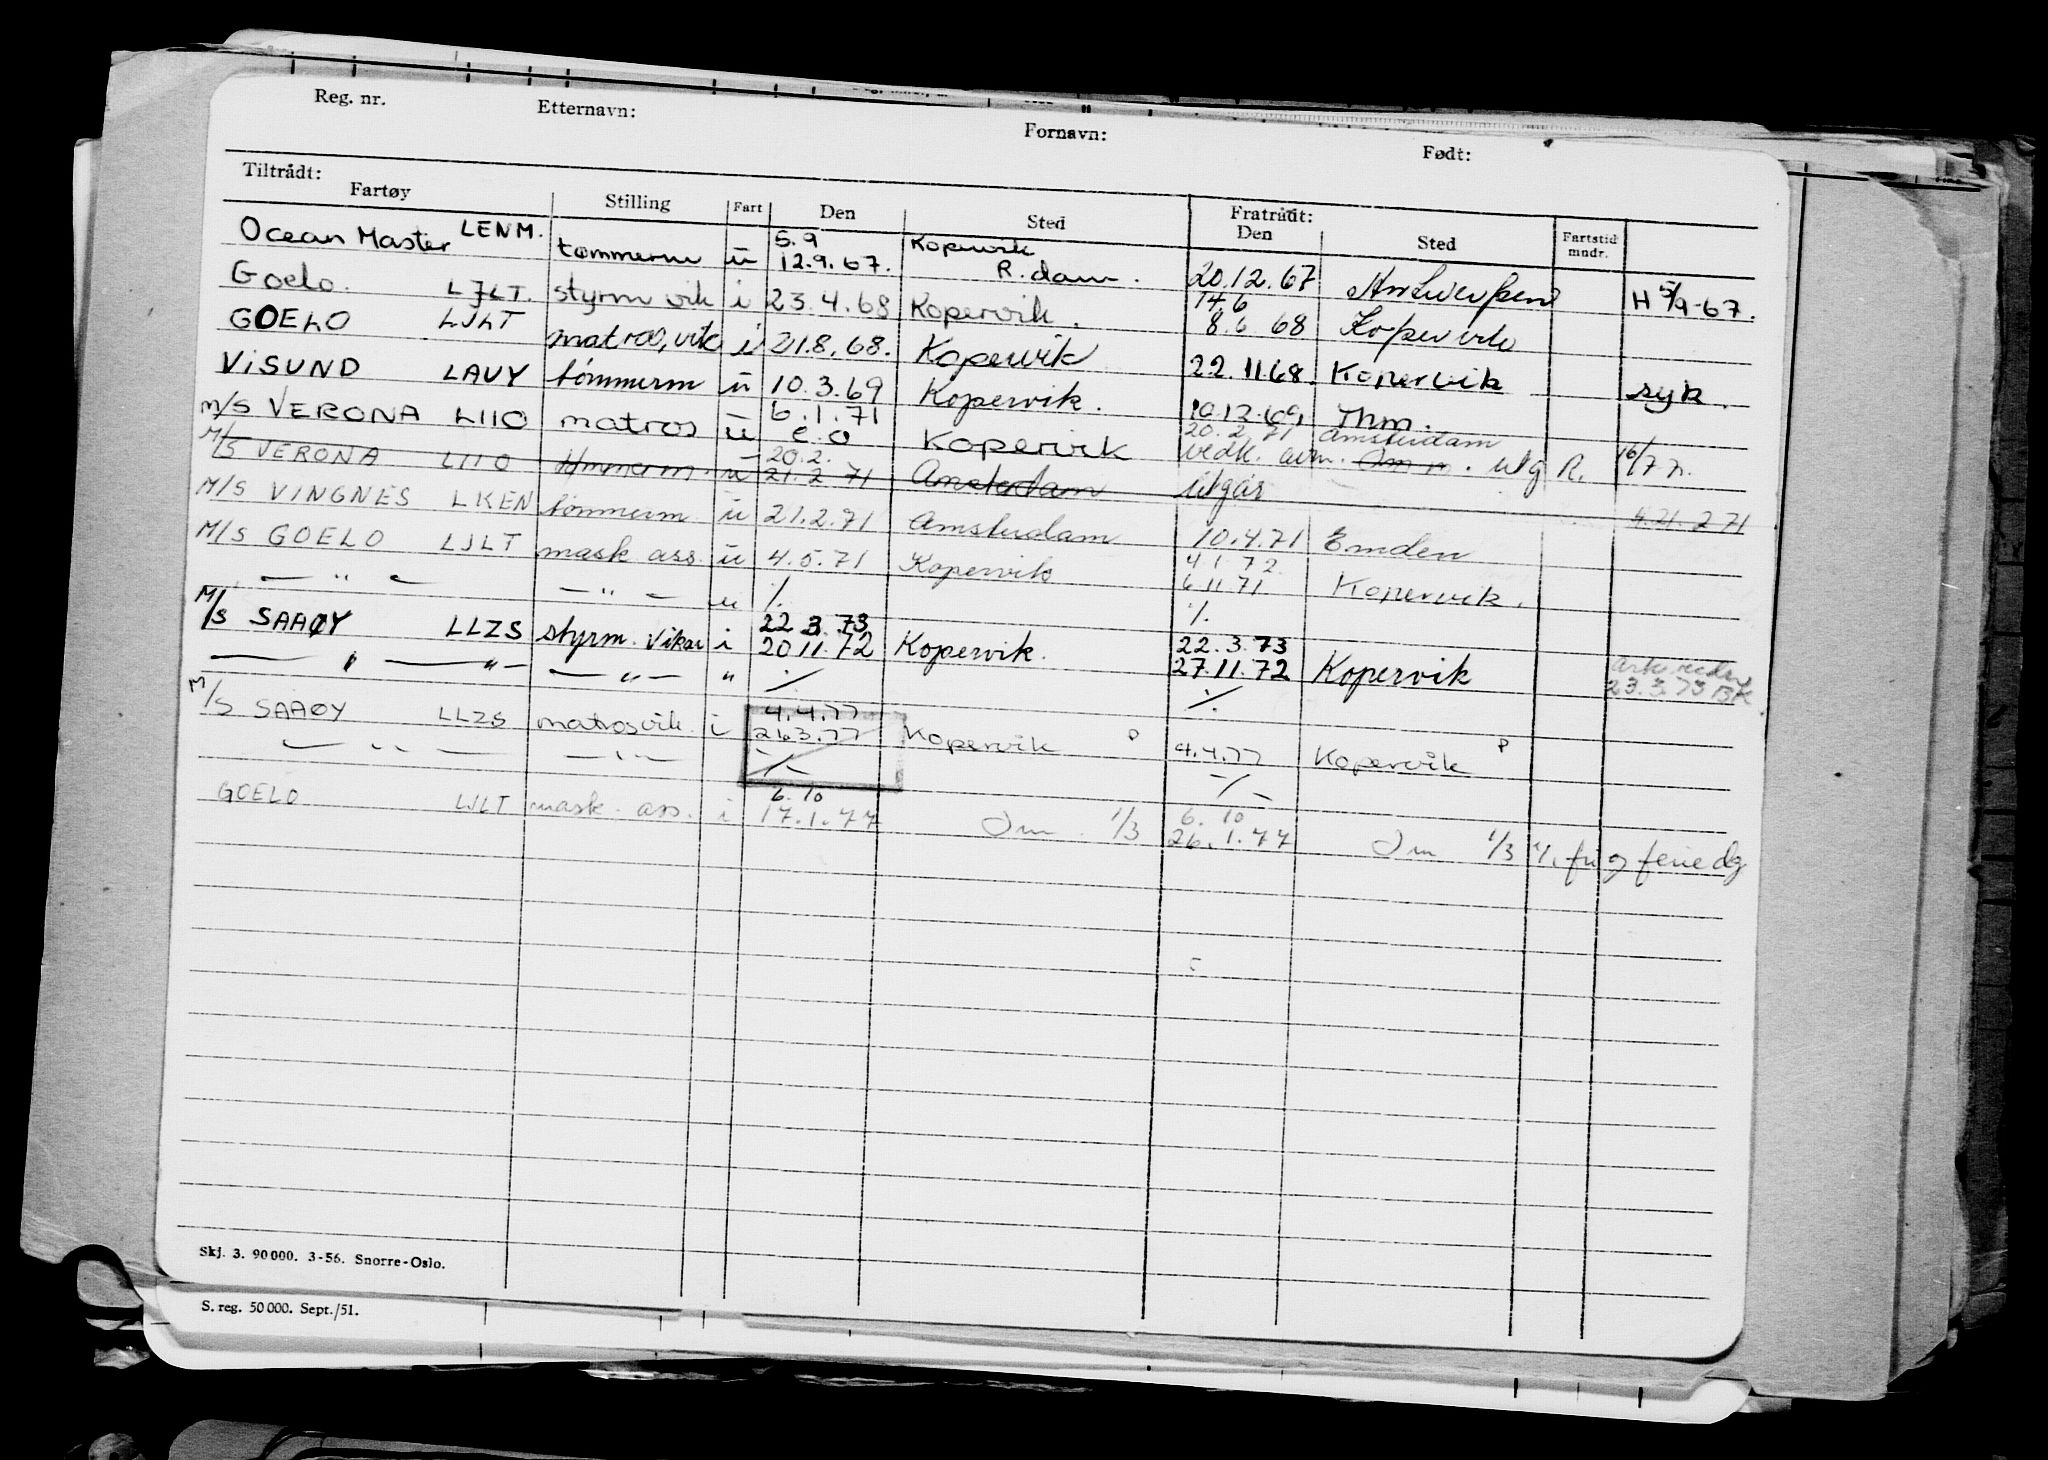 Reg. nr. Etternavn: Fornavn: Født:
Tiltrådt: Fratrådt:
Fartøy Stilling Fart Den Sted Den Sted Fartstid mndr.
Ocean Master LENM. tømmerm u 5.9 12.9.67. Kopervik R.dam. 20.12.67 Antwerpen H 5/9-67.
Goelo. LJLT. styrm vik i 23.4.68 Kopervik. 14.6 8.6 68 Kopervik
GOELO LJLT matros, vik i 21.8.68. Kopervik 22.11.68. Kopervik syk.
VISUND LAUY tømmerm u 10.3.69 Kopervik. 10.12.69 Thm.
M/S VERONA LIIO matros u 6.1.71 e.o Kopervik 20.2.71 Amsterdam
M/S VERONA LIIO tømmerm u 20.2. 21.2 71 Amsterdam utgår
M/S VINGNES LKEN tømmerm u 21.2.71 Amsterdam 10.4.71 Emden
M/S GOELO LJLT mask ass. u 4.5.71 Kopervik 4 1 72 6 11 71. Kopervik.
— " — — " — u ·/. ·/.
M/S SAAØY LLZS styrm. vikar i 22 3.73 20 11.72 Kopervik. 22.3.73 27.11.72 Kopervik
— " — " — — " — " ·/. ·/. 23.3.73 BK.
M/S SAAØY LLZS matros vik. i 4.4.77 26.3.77 Kopervik P 4.4.77 Kopervik P
— " — — " — -/- -/-
GOELO LJLT mask. ass. i 6.10 17.1.77 1/3 6.10 26.1.77 1/3 og feriedg
Skj. 3. 90 000. 3-56. Snorre-Oslo.
S. reg. 50 000. Sept./51.